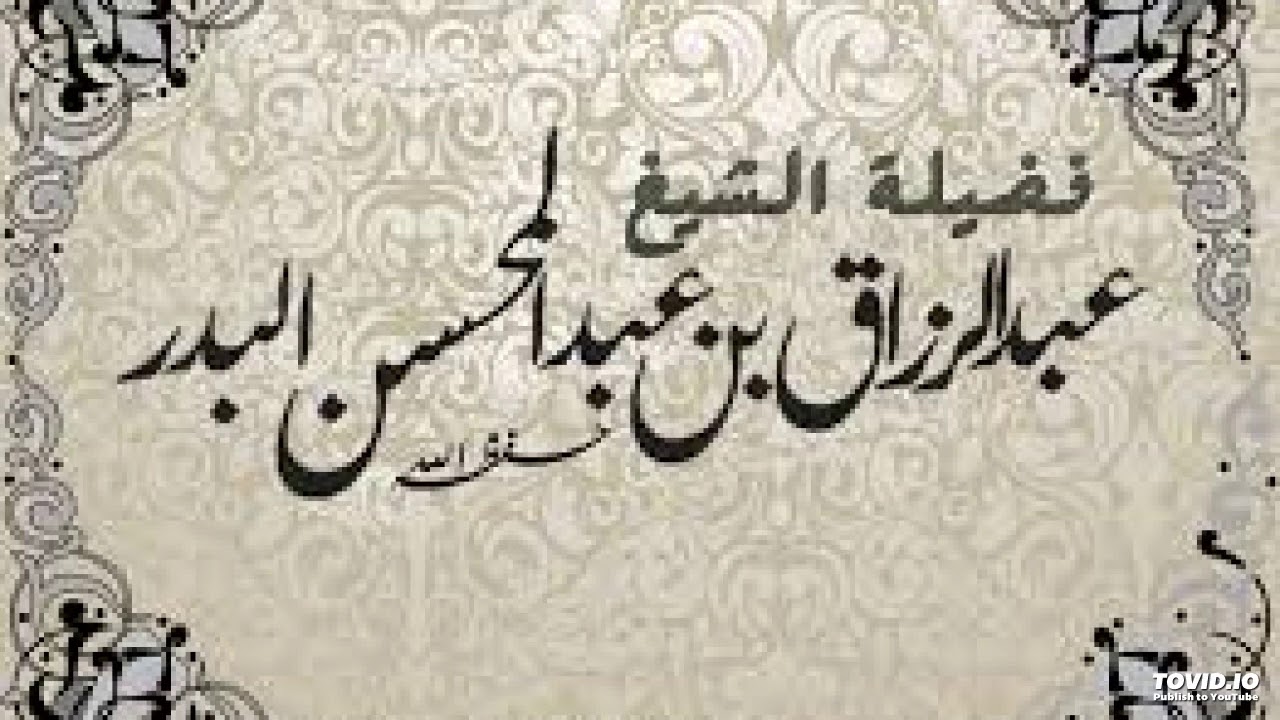 فضيلة الشيخ
عبدالرزاق بن عبدالمحسن البدر
حفظه الله
TOVID.IO
Publish to YouTube